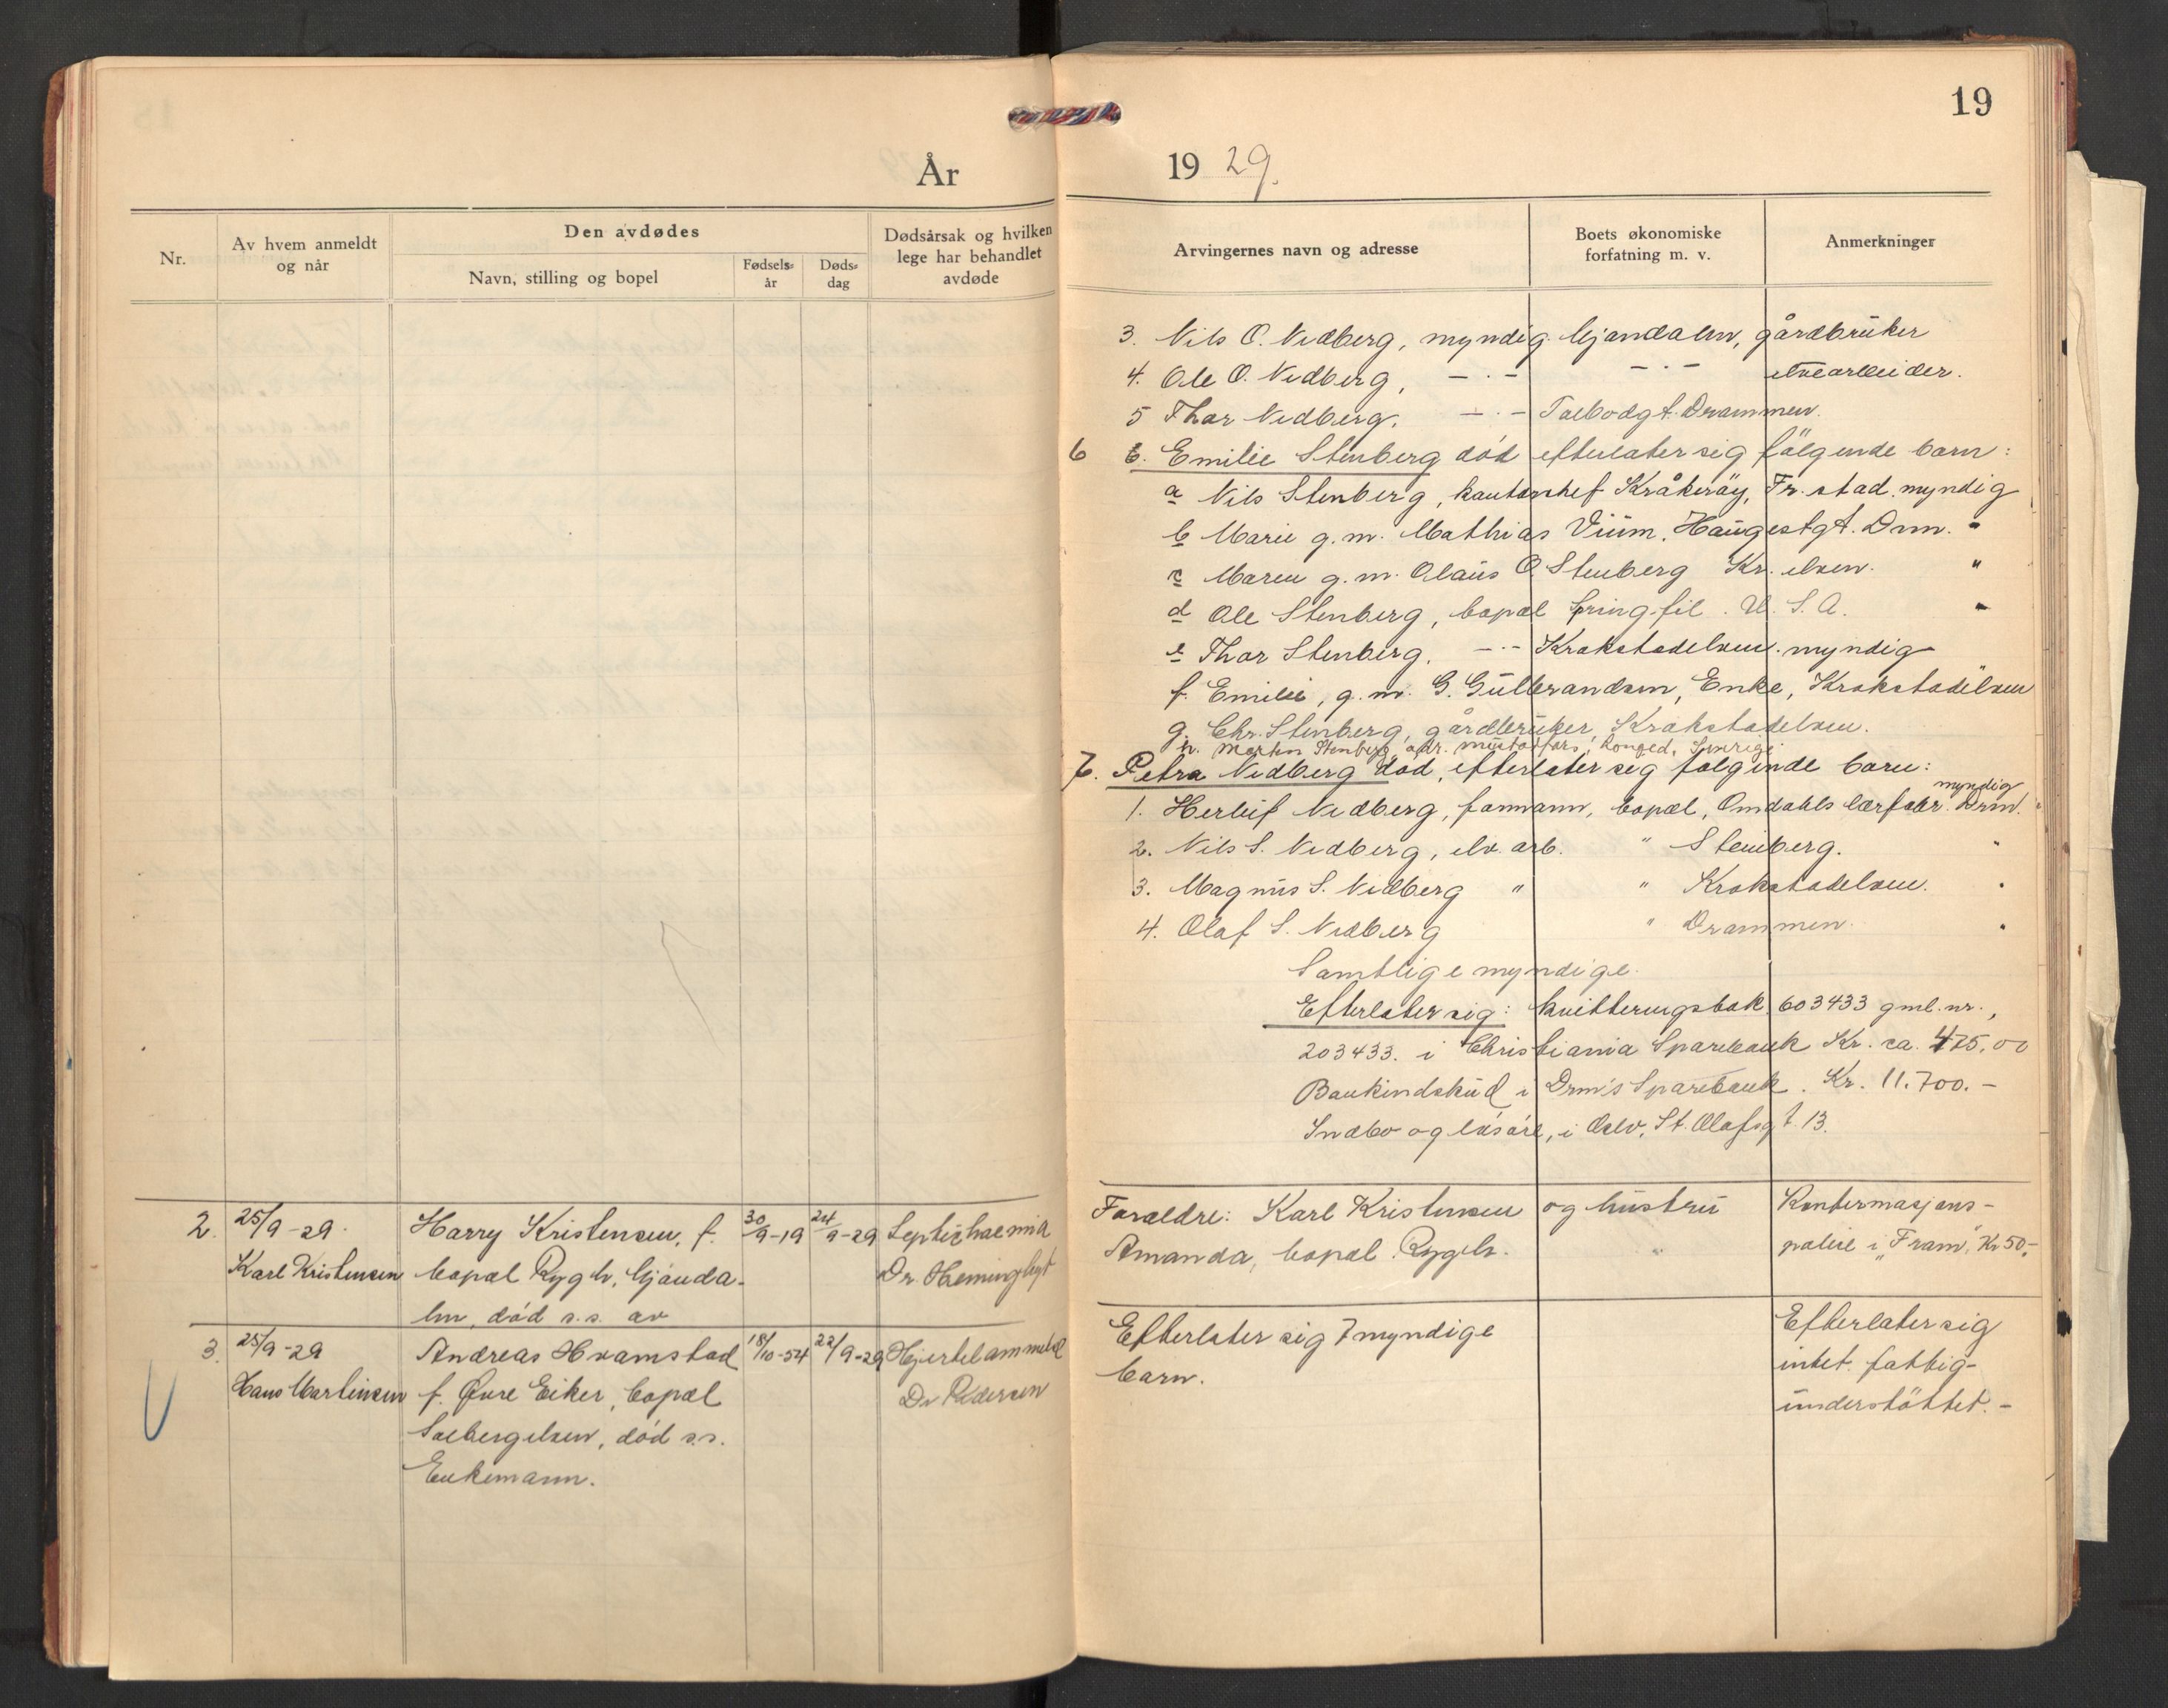 19
År
19 29.
Nr.
Av hvem anmeldt
og når
Den avdødes
Navn, stilling og bopel
Fødsels-
år
Døds-
dag
Dødsårsak og hvilken
lege har behandlet
avdøde
Arvingernes navn og adresse
Boets økonomiske
forfatning m. v.
Anmerkninger
3. Nils O. Nedberg, myndig. Mjøndalen, gårdbruker
4. Ole O. Nedberg, — · — — · — elvearbeider.
5 Thor Nedberg. — · — Tolbodgt. Drammen.
6 6. Emilie Stenberg død efterlater sig følgende barn:
a Nils Stenberg, kontorchef Kråkerøy, Fr.stad. myndig
b Marie g.m. Mathias Viüm. Haugestgt. Drm. "
c Maren g.m. Olaus O. Stenberg Kr. elven. "
d Ole Stenberg, bopæl Springfil. U. S. A. "
e Thor Stenberg. — · — Krokstadelven. myndig
f. Emilie, g.m. G. Gulbrandsen, Enke, Krokstadelven
g. Chr. Stenberg, gårdbruker, Krokstadelven.
h. Morten Stenberg, adr. Sverige.
7. Petra Nedberg død, efterlater sig følgende barn:
myndig
1. Herleif Nedberg, formann, bopæl, Omdahls lærfabr. Drm.
2. Nils S. Nedberg, elv. arb. " Stenberg. "
3. Magnus S. Nedberg " " Krokstadelven. "
4. Olaf S. Nedberg " Drammen. "
Samtlige myndige.
Efterlater sig: kvitteringsbok 603433 gml. nr.,
203433. i Christiania Sparebank Kr. ca. 475,00
Bankindskud i Drm's Sparebank. Kr. 11.700.-
Indbo og løsøre, i Oslo, St. Olafsgt. 13.
2. 25/9-29.
Karl Kristensen
Harry Kristensen, f.
bopæl Rygh, Mjønda-
len, død s.s. av
30/9-19
24/9-29
Septichaemia
Dr. Heminghyt
Foreldre: Karl Kristensen og hustru
Amanda, bopæl Rygh.
Konfermasjons-
police i "Fram", Kr 50,-
3. 25/9-29
Hans Martinsen
Andreas Hvamstad
f. Øvre Eiker, bopæl
Solbergelven, død s.s.
Enkemann.
18/10-54
22/9-29
Hjertelammelse
Dr Pedersen
Efterlater sig 7 myndige
barn.
Efterlater sig
intet. fattig-
understøttet.-